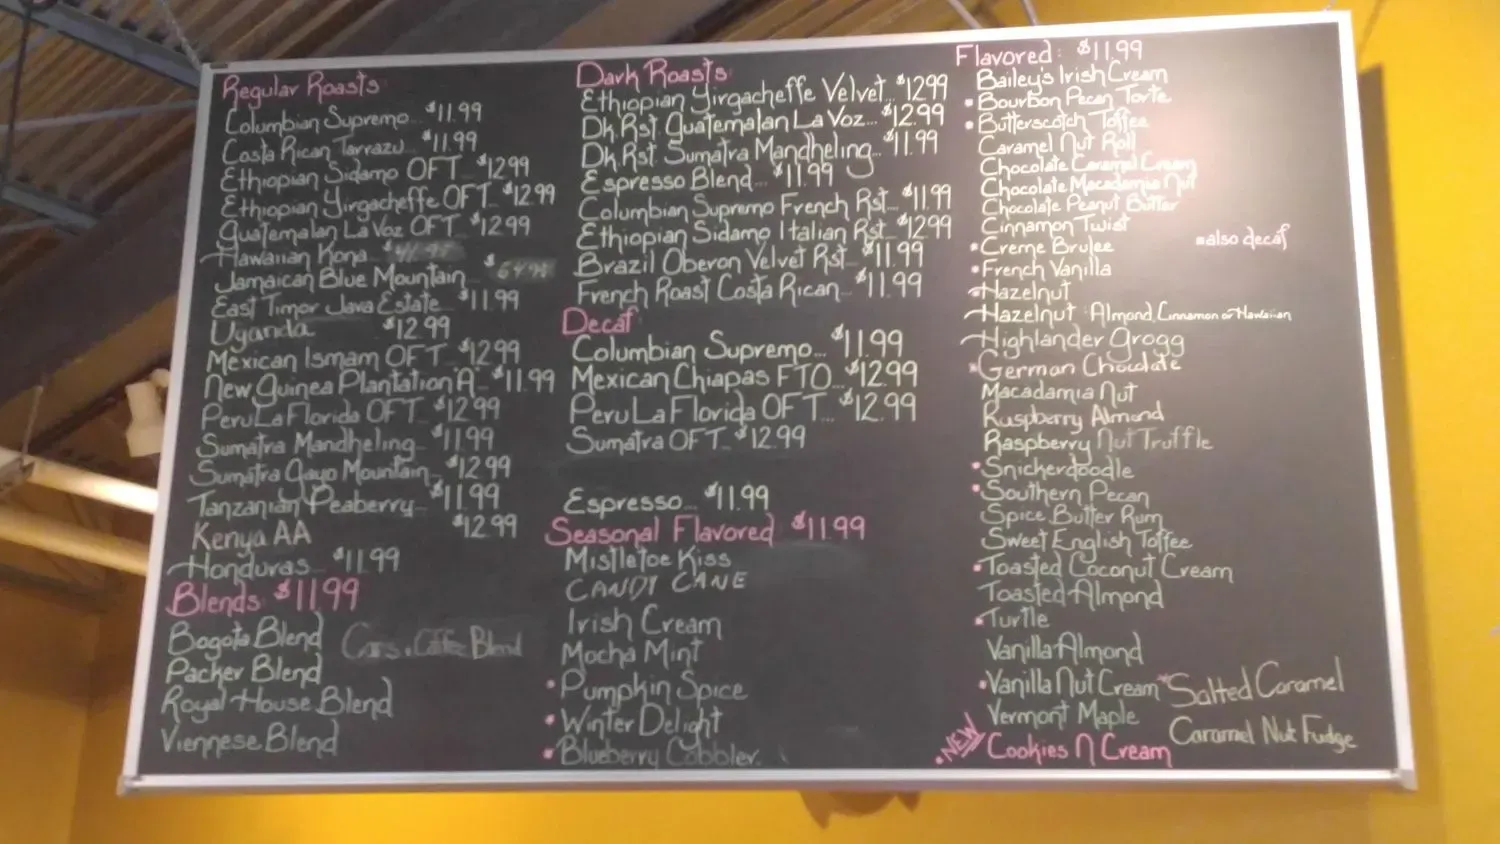 Regular Roasts:
Columbian Supremo... $11.99
Costa Rican Tarrazu... $11.99
Ethiopian Sidamo OFT... $12.99
Ethiopian Yirgacheffe OFT... $12.99
Guatemalan La Voz OFT... $12.99
Hawaiian Kona... $
Jamaican Blue Mountain... $64.99
East Timor Java Estate... $11.99
Uganda $12.99
Mexican Ismam OFT... $12.99
New Guinea Plantation A... $11.99
Peru La Florida OFT... $12.99
Sumatra Mandheling... $11.99
Sumatra Gayo Mountain... $12.99
Tanzanian Peaberry... $11.99
Kenya AA $12.99
Honduras... $11.99
Blends: $11.99
Bogota Blend
Coffee Blend
Packer Blend
Royal House Blend
Viennese Blend
Dark Roasts:
Ethiopian Yirgacheffe Velvet... $12.99
Dk. Rst. Guatemalan La Voz... $12.99
Dk. Rst. Sumatra Mandheling... $11.99
Espresso Blend... $11.99
Columbian Supremo French Rst... $11.99
Ethiopian Sidamo Italian Rst... $12.99
Brazil Oberon Velvet Rst... $11.99
French Roast Costa Rican... $11.99
Decaf:
Columbian Supremo... $11.99
Mexican Chiapas FTO... $12.99
Peru La Florida OFT... $12.99
Sumatra OFT... $12.99
Espresso... $11.99
Seasonal Flavored $11.99
Mistletoe Kiss
CANDY CANE
Irish Cream
Mocha Mint
• Pumpkin Spice
• Winter Delight
• Blueberry Cobbler
Flavored: $11.99
Bailey's Irish Cream
• Bourbon Pecan Torte
• Butterscotch Toffee
Caramel Nut Roll
Chocolate Caramel Cream
Chocolate Macadamia Nut
Chocolate Peanut Butter
Cinnamon Twist
• Creme Brulee
• also decaf
• French Vanilla
• Hazelnut
Hazelnut: Almond, Cinnamon or Hawaiian
Highlander Grogg
• German Chocolate
Macadamia Nut
Raspberry Almond
Raspberry Nut Truffle
• Snickerdoodle
• Southern Pecan
Spice Butter Rum
Sweet English Toffee
• Toasted Coconut Cream
Toasted Almond
• Turtle
Vanilla Almond
• Vanilla Nut Cream
Vermont Maple
• NEW Cookies N Cream
* Salted Caramel
Caramel Nut Fudge